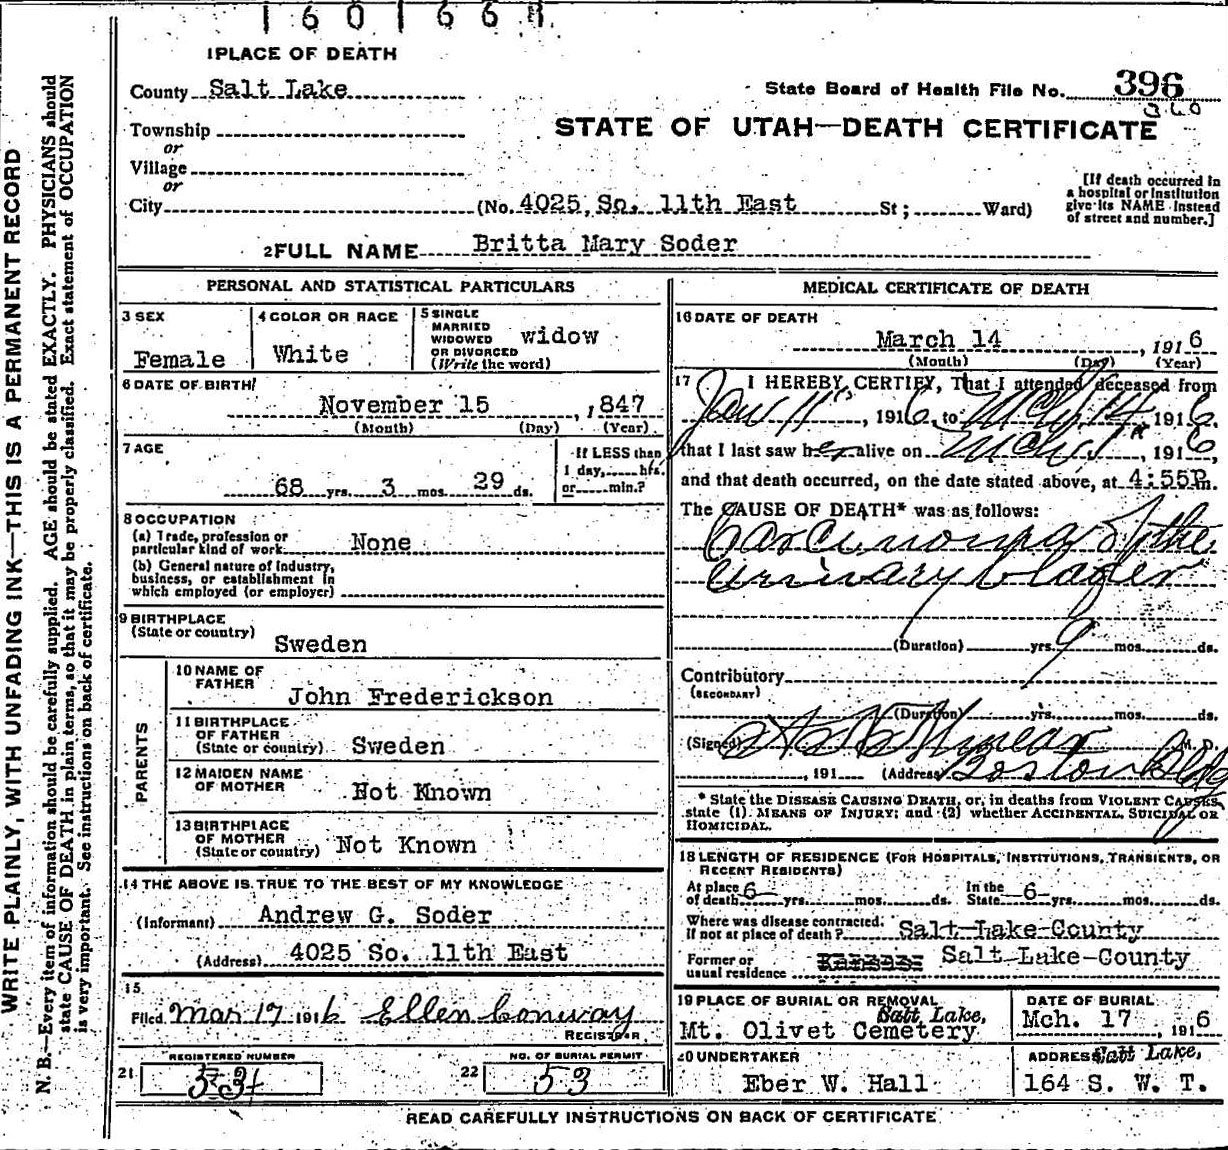 1601661
1 PLACE OF DEATH
County Salt Lake
State Board of Health File No. 396
360
Township
or
STATE OF UTAH—DEATH CERTIFICATE
Village
or
City (No. 4025 So. 11th East St; Ward)
[If death occurred in a hospital or institution give its NAME instead of street and number.]
2 FULL NAME Britta Mary Soder
PERSONAL AND STATISTICAL PARTICULARS
3 SEX
Female
4 COLOR OR RACE
White
5 SINGLE
MARRIED
WIDOWED
OR DIVORCED
(Write the word)
widow
6 DATE OF BIRTH
November 15, 1847
(Month) (Day) (Year)
7 AGE
68 yrs. 3 mos. 29 ds.
If LESS than
1 day, hrs.
or min.?
8 OCCUPATION
(a) Trade, profession or
particular kind of work None
(b) General nature of industry,
business, or establishment in
which employed (or employer)
9 BIRTHPLACE
(State or country)
Sweden
PARENTS
10 NAME OF
FATHER
John Frederickson
11 BIRTHPLACE
OF FATHER
(State or country) Sweden
12 MAIDEN NAME
OF MOTHER Not Known
13 BIRTHPLACE
OF MOTHER
(State or country) Not Known
14 THE ABOVE IS TRUE TO THE BEST OF MY KNOWLEDGE
(Informant) Andrew G. Soder
(Address) 4025 So. 11th East
15
Filed Mar 17 1916 Ellen Conway
REGISTRAR
REGISTERED NUMBER
21
NO. OF BURIAL PERMIT
22 53
MEDICAL CERTIFICATE OF DEATH
16 DATE OF DEATH
March 14, 1916
(Month) (Day) (Year)
17 I HEREBY CERTIFY, That I attended deceased from
Jan 11, 1916, to Mch 14 1916,
that I last saw her alive on Mch, 1916,
and that death occurred, on the date stated above, at 4:55P m.
The CAUSE OF DEATH* was as follows:
Carcinoma of the
urinary blader
(Duration) yrs. 9 mos. ds.
Contributory
(SECONDARY)
(Duration) yrs. mos. ds.
(Signed) M. D.
, 191 (Address) Boston Bldg
* State the DISEASE CAUSING DEATH, or, in deaths from VIOLENT CAUSES, state (1) MEANS OF INJURY; and (2) whether ACCIDENTAL, SUICIDAL OR HOMICIDAL.
18 LENGTH OF RESIDENCE (FOR HOSPITALS, INSTITUTIONS, TRANSIENTS, OR
RECENT RESIDENTS)
At place
of death 6 yrs. mos. ds.
In the
State 6 yrs. mos. ds.
Where was disease contracted.
If not at place of death? Salt Lake County
Former or
usual residence Salt Lake County
19 PLACE OF BURIAL OR REMOVAL
Salt Lake,
Mt. Olivet Cemetery
DATE OF BURIAL
Mch. 17, 1916
20 UNDERTAKER
Eber W. Hall
ADDRESS Salt Lake,
164 S. W. T.
READ CAREFULLY INSTRUCTIONS ON BACK OF CERTIFICATE
WRITE PLAINLY, WITH UNFADING INK—THIS IS A PERMANENT RECORD
N. B.—Every item of information should be carefully supplied. AGE should be stated EXACTLY. PHYSICIANS should
state CAUSE OF DEATH in plain terms, so that it may be properly classified. Exact statement of OCCUPATION
is very important. See instructions on back of certificate.